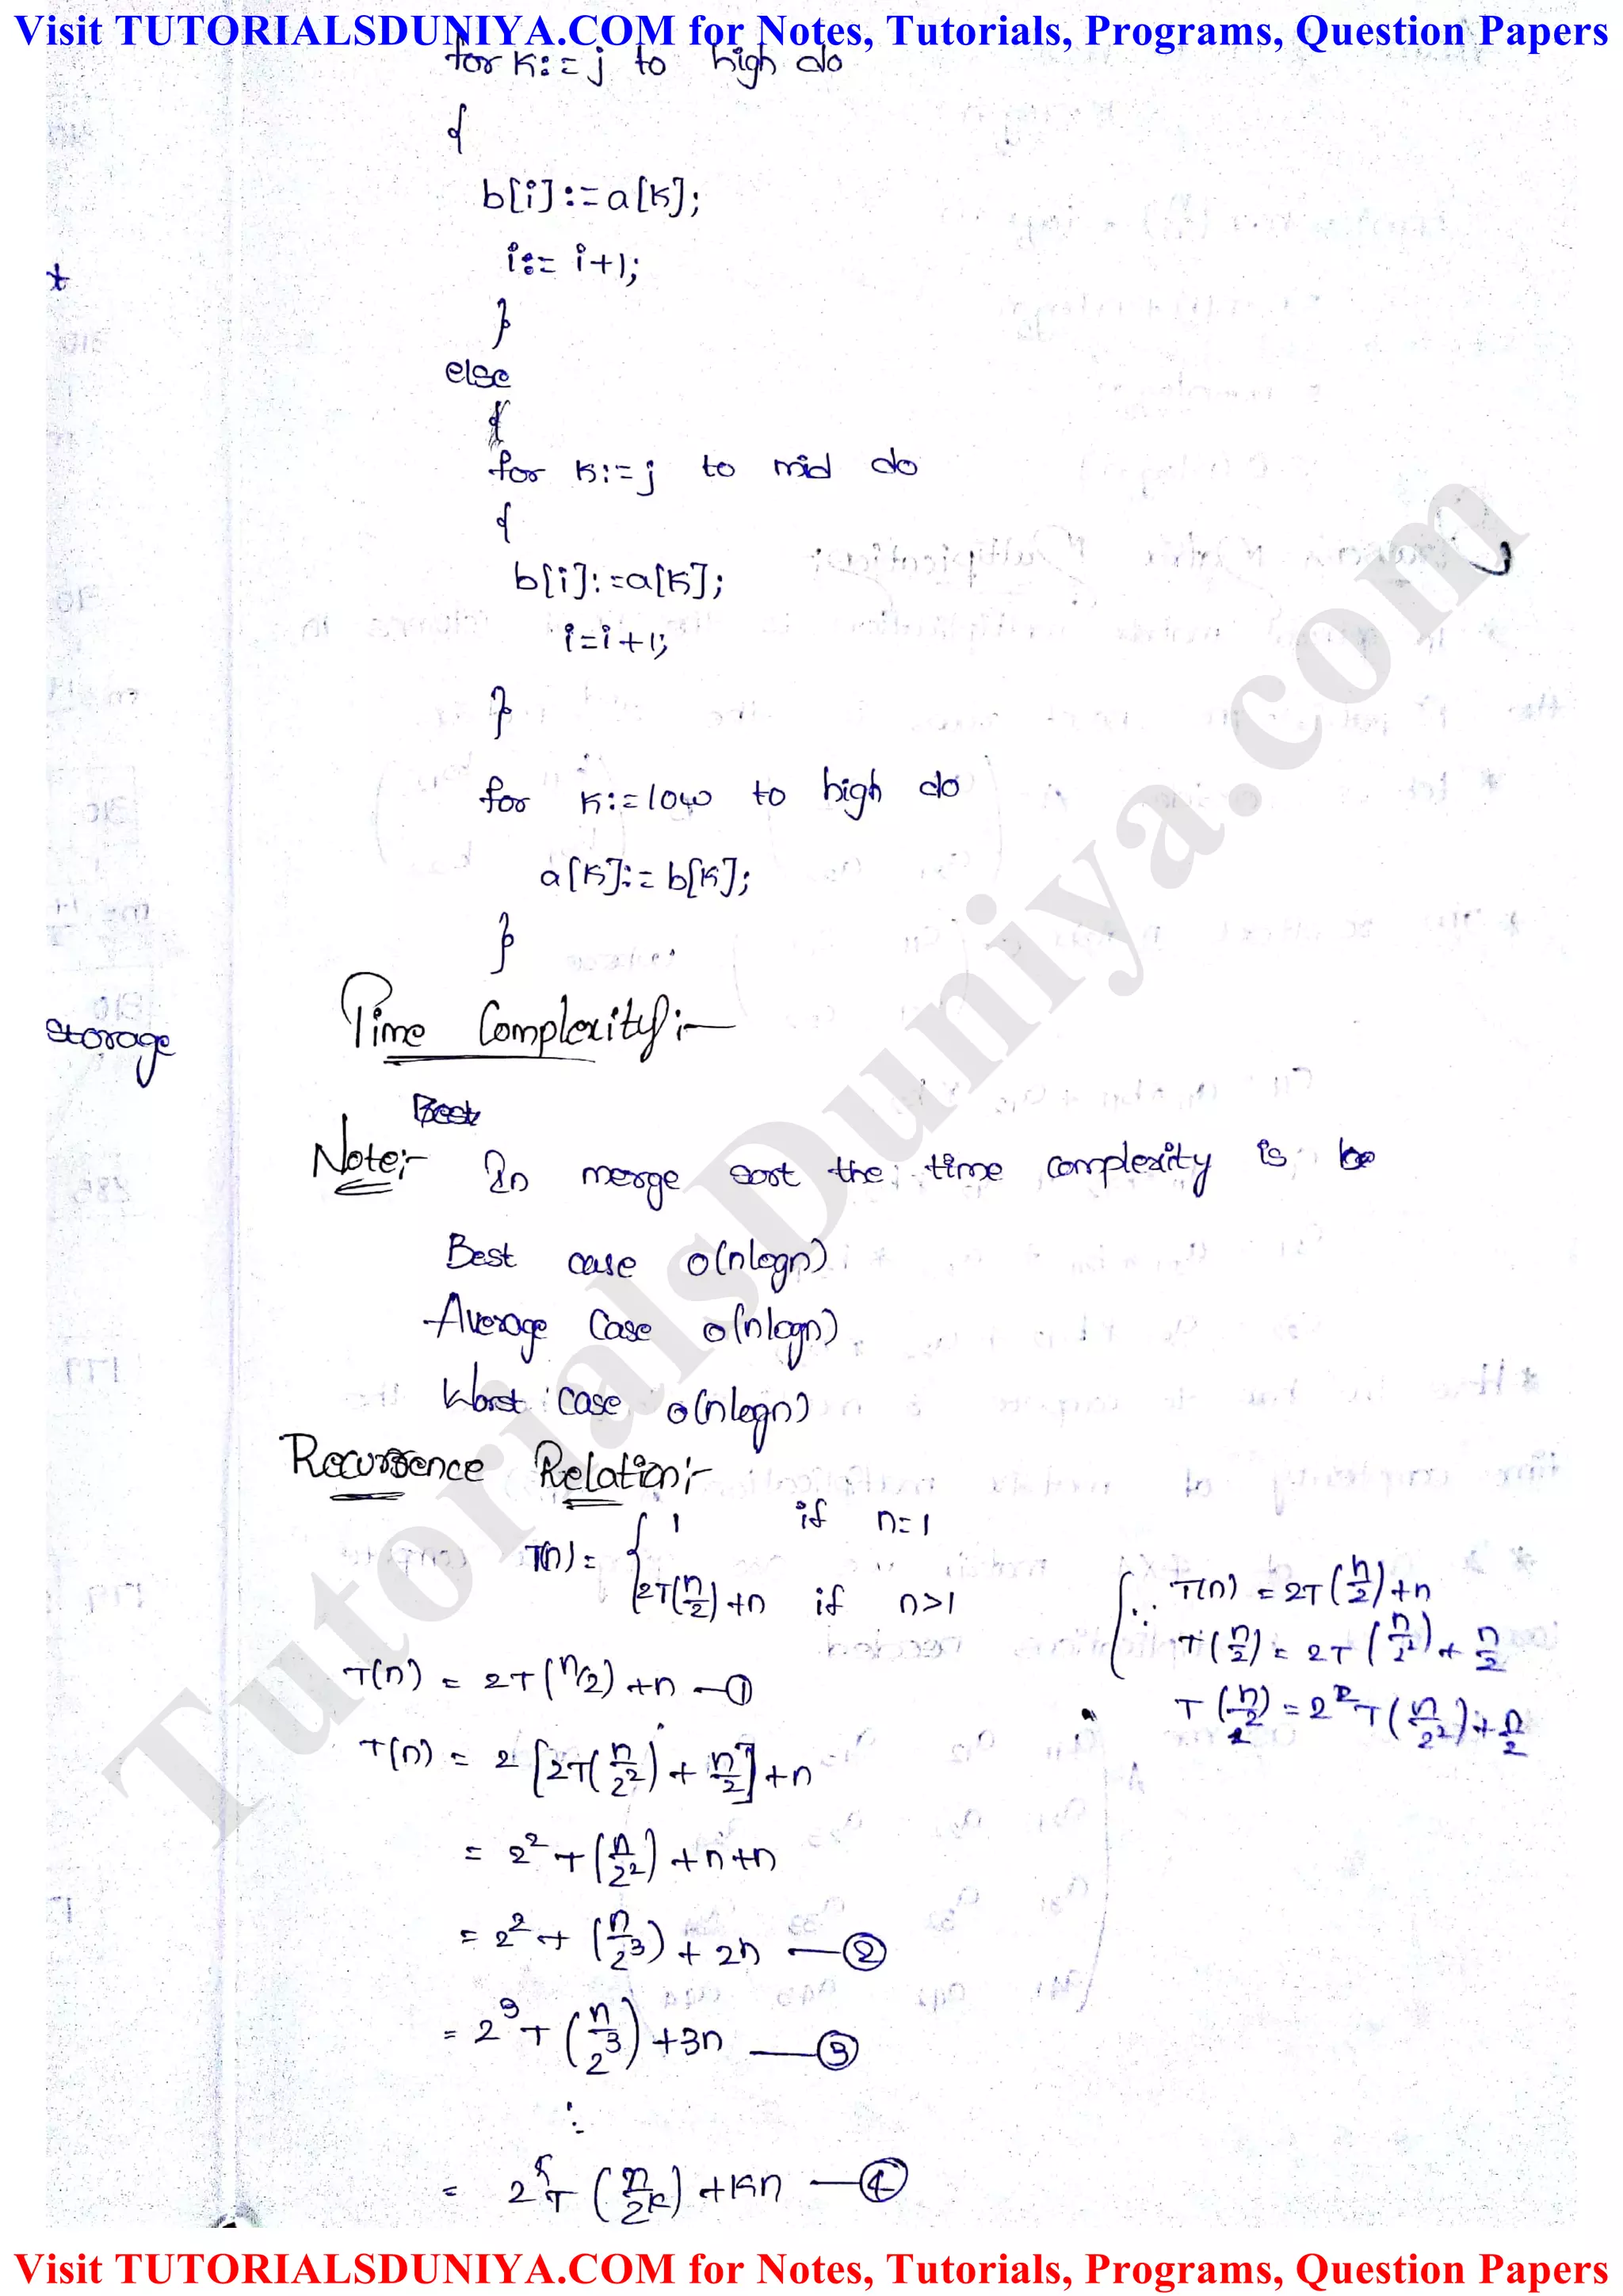 Visit TUTORIALSDUNIYA.COM for Notes, Tutorials, Programs, Question Papers
for k:=j to high do
{
b[i]:=a[k];
i:= i+1;
}
else
{
for k:=j to mid do
{
b[i]:=a[k];
i=i+1;
}
for k:=low to high do
a[k]:= b[k];
}
storage
Time Complexity:-
Note:- In merge sort the time complexity is be
Best case o(nlogn)
Average Case o(nlogn)
Worst case o(nlogn)
Recurrence Relation:-
T(n)= { 1 if n=1
2T(n/2)+n if n>1
∵ T(n) = 2T(n/2)+n
T(n/2) = 2T(n/2²)+n/2
T(n/2) = 2²T(n/2²)+n/2
T(n) = 2T(n/2)+n —①
T(n) = 2[2T(n/2²)+n/2]+n
= 2²T(n/2²)+n+n
= 2²T(n/2³)+2n —②
= 2³T(n/2³)+3n —③
⋮
= 2ᵏT(n/2ᵏ)+kn —④
TutorialsDuniya.com
Visit TUTORIALSDUNIYA.COM for Notes, Tutorials, Programs, Question Papers